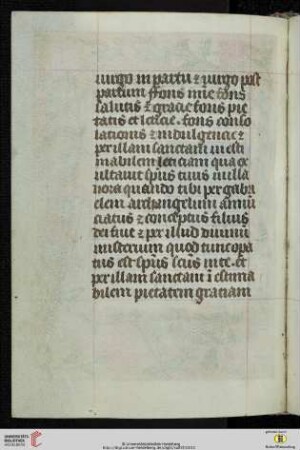 uirgo in partu & uirgo post
partum ffons mie fons
salutis & gracie fons pie
tatis et leticie. fons conso
lationis & indulgencie &
per illam sanctam inesti
mabilem leticiam qua ex
ultauit spūs tuus in illa
hora quando tibi per gabri
elem archangelum annū
ciatus & conceptus filius
dei fuit & per illud diuinū
misterium quod tunc opa
tus est spūs scūs in te. Et
per illam sanctam īestima
bilem pietatem graciam